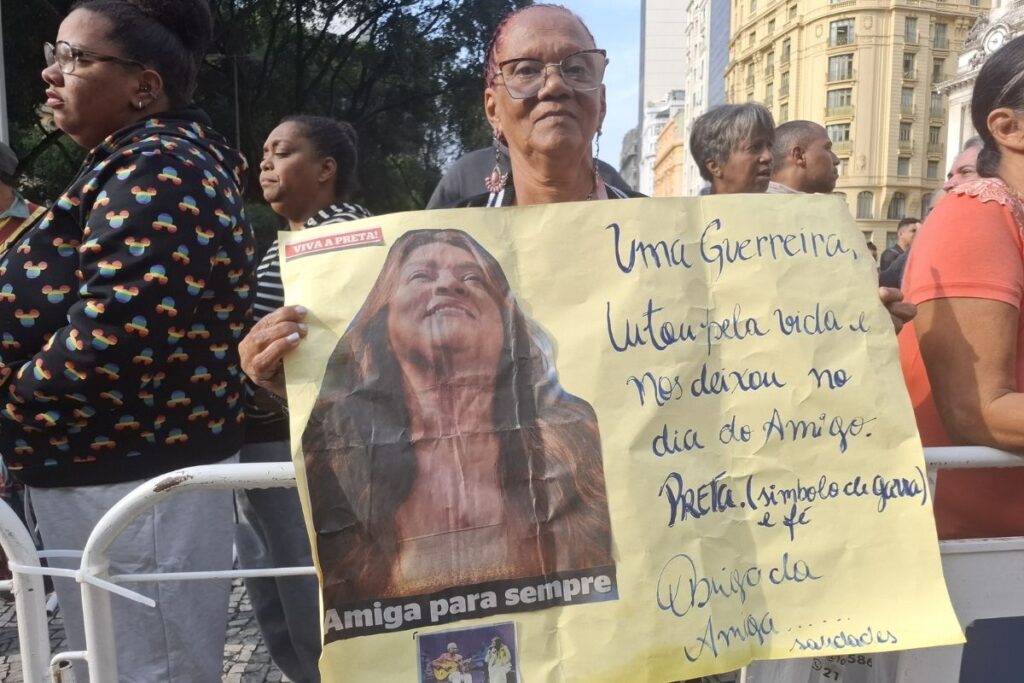 VIVA A PRETA!
Uma Guerreira,
lutou pela vida e
nos deixou no
dia do Amigo.
PRETA. (simbolo de garra)
e fé
Obrigada
Amiga......
saudades
Amiga para sempre
21